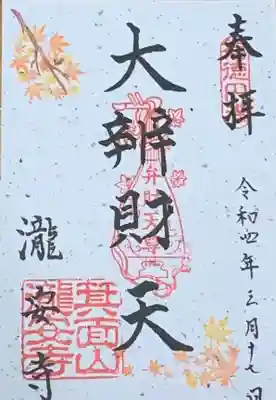 奉拝
令和四年三月十七日
大辨財天
瀧安寺
箕面山
瀧安寺